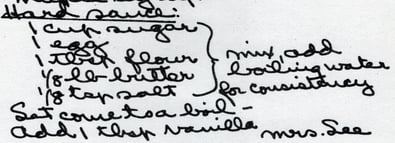 Hard sauce:
1 cup sugar
1 egg
1 tbsp flour
1/2 lb butter
1/8 tsp salt
mix, add
boiling water
for consistancy
Let come to a boil -
add 1 tbsp vanilla
Mrs. See